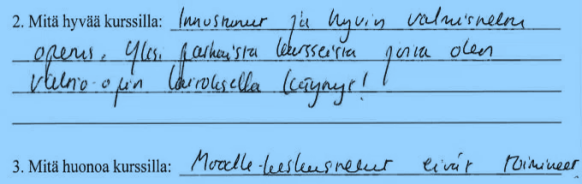 2. Mitä hyvää kurssilla: Innostunut ja hyvin valmisteltu
opetus. Yksi parhaista kursseista joita olen
valtio-opin laitoksella käynyt!
3. Mitä huonoa kurssilla: Moodle-keskustelut eivät toimineet